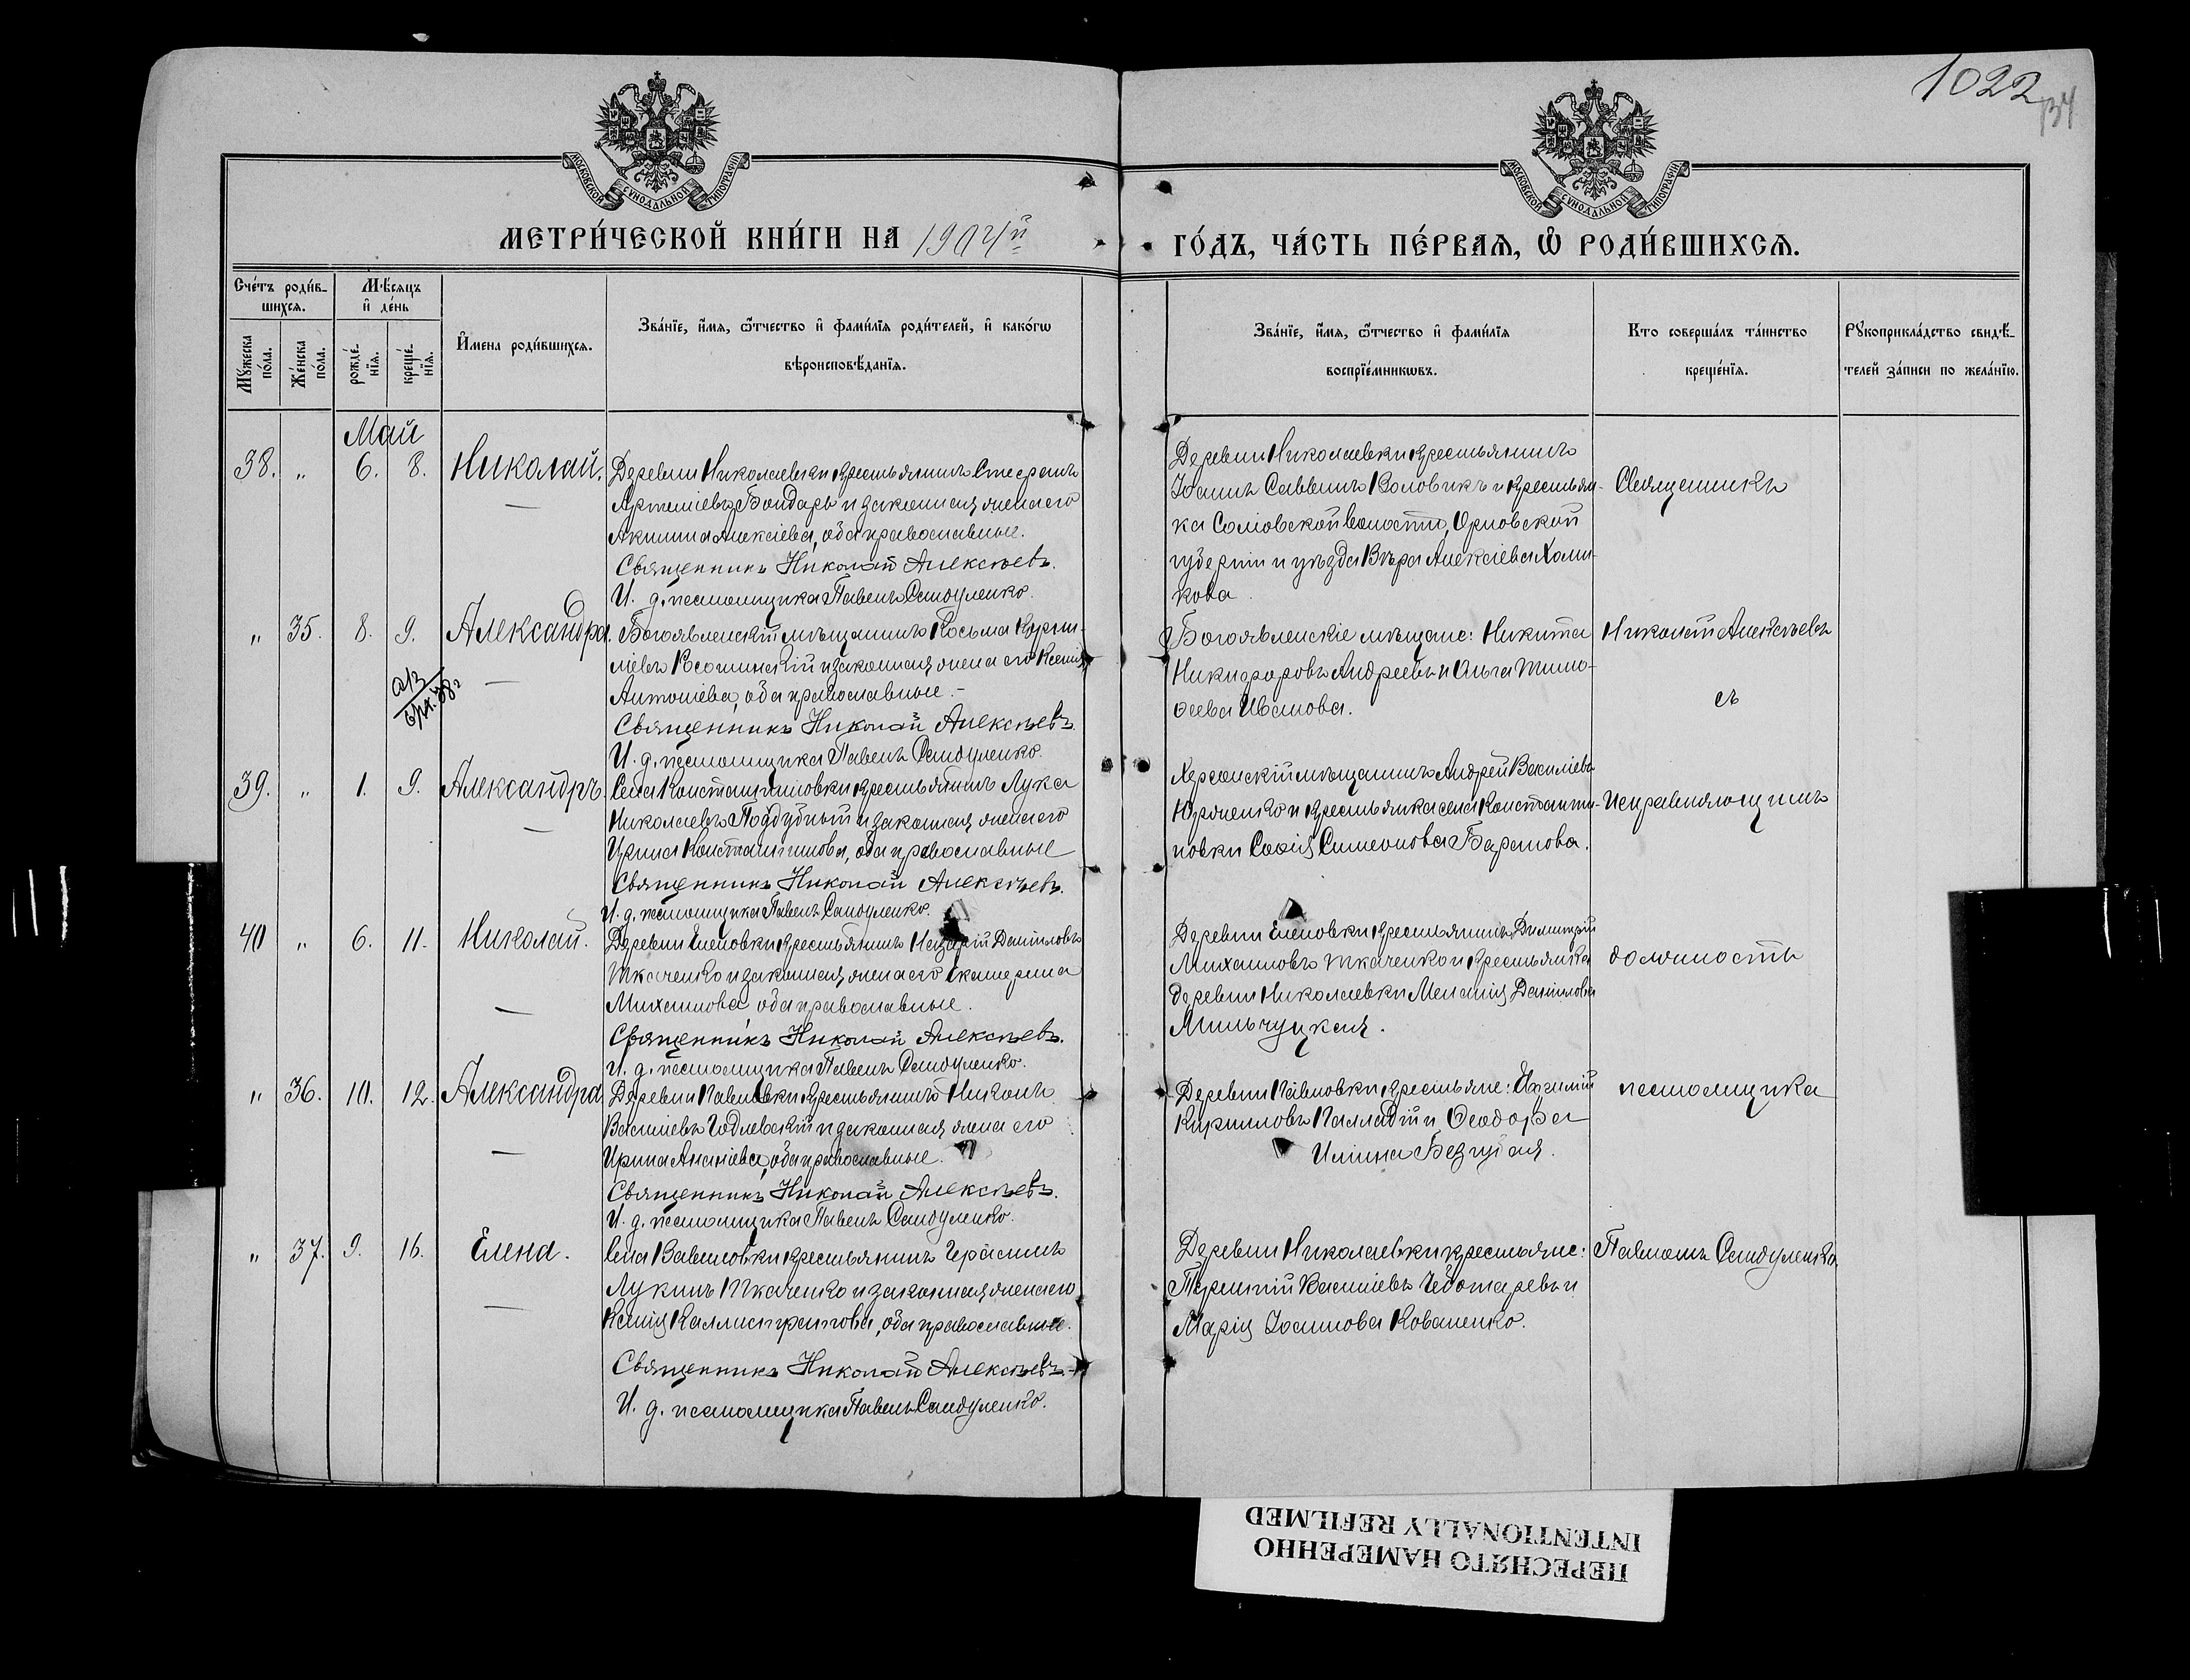 1022
34
МОСКОВСКОЙ СѴНОДАЛЬНОЙ ТИПОГРАФІИ
МОСКОВСКОЙ СѴНОДАЛЬНОЙ ТИПОГРАФІИ
МЕТРИ́ЧЕСКОЙ КНИ́ГИ НА 1904й
ГО́ДЪ, ЧА́СТЬ ПЕ́РВАѦ, Ѡ҆ РОДИ́ВШИХСѦ.
Сче́тъ роди́в-
шихсѧ.
Мѣ́сѧцъ
и҆ де́нь
Мꙋ́жеска
по́ла.
Же́нска
по́ла.
рожде́-
нїѧ.
креще́-
нїѧ.
И҆мена роди́вшихсѧ.
Зва́нїе, и҆́мѧ, ѻ҆́тчество и҆ фами́лїѧ роди́телей, и҆ како́гѡ
вѣроисповѣ́данїѧ.
Зва́нїе, и҆́мѧ, ѻ҆́тчество и҆ фами́лїѧ
воспрїе́мникѡвъ.
Кто соверша́лъ та́инство
креще́нїѧ.
Рꙋкоприкла́дство свидѣ́-
телей за́писи по жела́нїю.
Май
38. " 6. 8. Николай.
Деревни Николаевки крестьянинъ Стефанъ
Артеміевъ Бондарь и законная жена его
Акилина Алексіева, оба православные.
Священникъ Николай Алексѣевъ.
И. д. псаломщика Павелъ Сандуленко.
Деревни Николаевки крестьянинъ
Іоаннъ Саввинъ Воловикъ и крестьян-
ка Соловской волости, Орловской
губерніи и уѣзда Вѣра Алексіева Холи-
кова.
Священникъ
" 35. 8. 9. Александра.
Богоявленскій мѣщанинъ Косьма Корни-
ліевъ и законная жена его Ксенія
Антоніева, оба православные.-
Священникъ Николай Алексѣевъ.
И. д. псаломщика Павелъ Сандуленко.
Богоявленскіе мѣщане: Никита
Никифоровъ Андреевъ и Ольга Тимо-
ѳеева Иванова.
Николай Алексѣевъ
съ
39. " 1. 9. Александръ.
Села Константиновки крестьянинъ Лука
Николаевъ Поддубный и законная жена его
Ирина Константинова, оба православные
Священникъ Николай Алексѣевъ.
И. д. псаломщика Павелъ Сандуленко.
Херсонскій мѣщанинъ Андрей Василіевъ
Юрченко и крестьянка села Константи-
новки Софія Симеонова Баранова.
Исправляющимъ
40 " 6. 11. Николай.
Деревни Еленовки крестьянинъ Назарій Даниловъ
Ткаченко и законная жена его Екатерина
Михаилова оба православные.
Священникъ Николай Алексѣевъ.
И. д. псаломщика Павелъ Сандуленко.
Деревни Еленовки крестьянинъ Димитрій
Михаиловъ Ткаченко и крестьянка
деревни Николаевки Меланія Данилова
Мильчуцкая.
должность
" 36. 10. 12. Александра
Деревни Павловки крестьянинъ Никонъ
Василіевъ Годлевскій и законная жена его
Ирина Ананіева, оба православные.
Священникъ Николай Алексѣевъ.
И. д. псаломщика Павелъ Сандуленко.
Деревни Павловки крестьяне:
Кирилловъ Палладій и Ѳеодора
Илiина Безгубая.
псаломщика
" 37. 9. 16. Елена.
Села Вавиловки крестьянинъ Герасимъ
Лукинъ Ткаченко и законная жена его
Ксенія Каллистратова, оба православные.
Священникъ Николай Алексѣевъ.-
И. д. псаломщика Павелъ Сандуленко.
Деревни Николаевки крестьяне:
Терентій Василіевъ Чеботаревъ и
Марія Іоаннова Коваленко.
Павломъ Сандуленко
ПЕРЕСНЯТО НАМЕРЕННО
INTENTIONALLY REFILMED